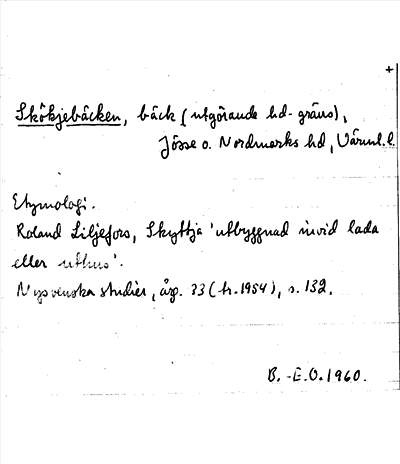 +
Skökjebäcken, bäck (utgörande hd-gräns),
Jösse o. Nordmarks hd, Värml. l.
Etymologi.
Roland Liljefors, Skyttja 'utbyggnad invid lada
eller uthus'.
Nysvenska studier, årg. 33 (tr. 1954), s. 132.
B.-E.O. 1960.